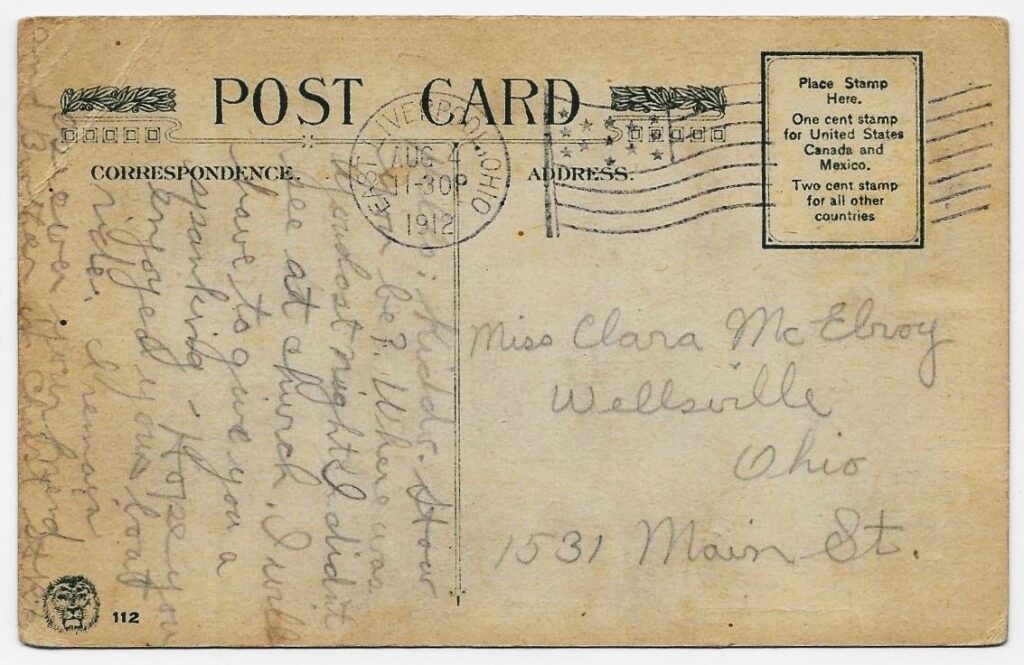 POST CARD
CORRESPONDENCE.
ADDRESS.
EAST LIVERPOOL, OHIO
AUG 4
11-30P
1912
Place Stamp
Here.
One cent stamp
for United States
Canada and
Mexico.
Two cent stamp
for all other
countries
kiddo. How
be? Where was
you last night I didn't
see at church. I will
have to give you a
spanking - Hope you
enjoyed your boat
ride. I remain
as ever your friend
and Brother in Christ
Miss Clara McElroy
Wellsville
Ohio
1531 Main St.
112